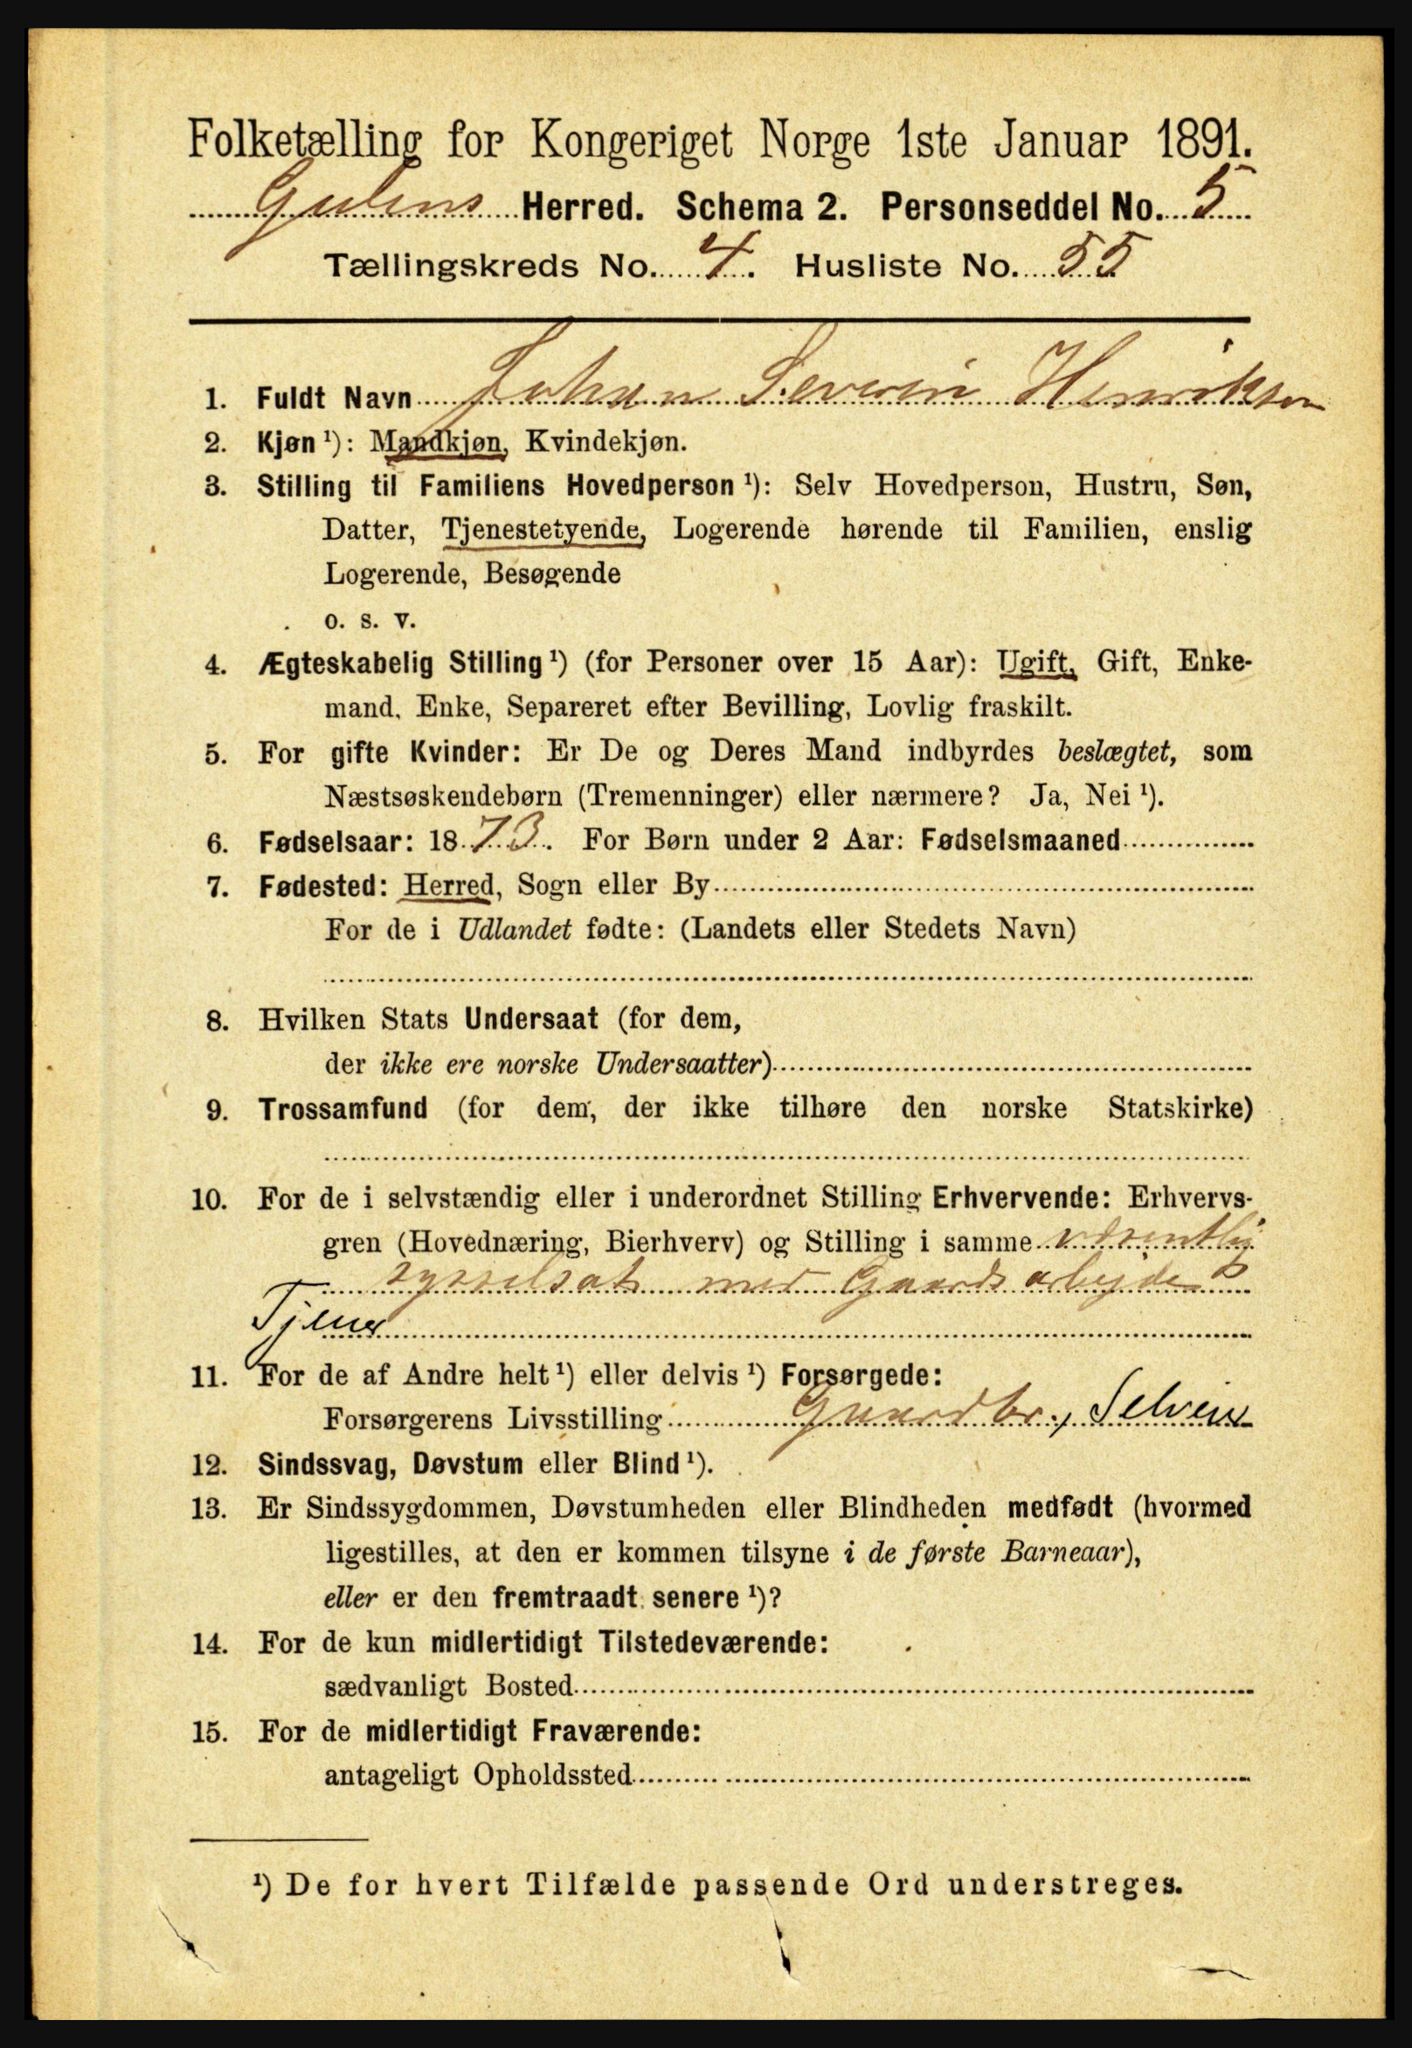 Folketælling for Kongeriget Norge 1ste Januar 1891.
Gulens Herred. Schema 2. Personseddel No. 5
Tællingskreds No. 4. Husliste No. 55
1. Fuldt Navn Johan Severin Henriksen
2. Kjøn ¹): Mandkjøn, Kvindekjøn.
3. Stilling til Familiens Hovedperson ¹): Selv Hovedperson, Hustru, Søn,
Datter, Tjenestetyende, Logerende hørende til Familien, enslig
Logerende, Besøgende
o. s. v.
4. Ægteskabelig Stilling ¹) (for Personer over 15 Aar): Ugift, Gift, Enke-
mand, Enke, Separeret efter Bevilling, Lovlig fraskilt.
5. For gifte Kvinder: Er De og Deres Mand indbyrdes beslægtet, som
Næstsøskendebørn (Tremenninger) eller nærmere? Ja, Nei ¹).
6. Fødselsaar: 1873. For Børn under 2 Aar: Fødselsmaaned
7. Fødested: Herred, Sogn eller By
For de i Udlandet fødte: (Landets eller Stedets Navn)
8. Hvilken Stats Undersaat (for dem,
der ikke ere norske Undersaatter)
9. Trossamfund (for dem, der ikke tilhøre den norske Statskirke)
10. For de i selvstændig eller i underordnet Stilling Erhvervende: Erhvervs-
gren (Hovednæring, Bierhverv) og Stilling i samme væsentlig
sysselsat med Gaardsarbeide
Tjener
11. For de af Andre helt ¹) eller delvis ¹) Forsørgede:
Forsørgerens Livsstilling Gaardbr., Selveier
12. Sindssvag, Døvstum eller Blind ¹).
13. Er Sindssygdommen, Døvstumheden eller Blindheden medfødt (hvormed
ligestilles, at den er kommen tilsyne i de første Barneaar),
eller er den fremtraadt senere ¹)?
14. For de kun midlertidigt Tilstedeværende:
sædvanligt Bosted
15. For de midlertidigt Fraværende:
antageligt Opholdssted
¹) De for hvert Tilfælde passende Ord understreges.